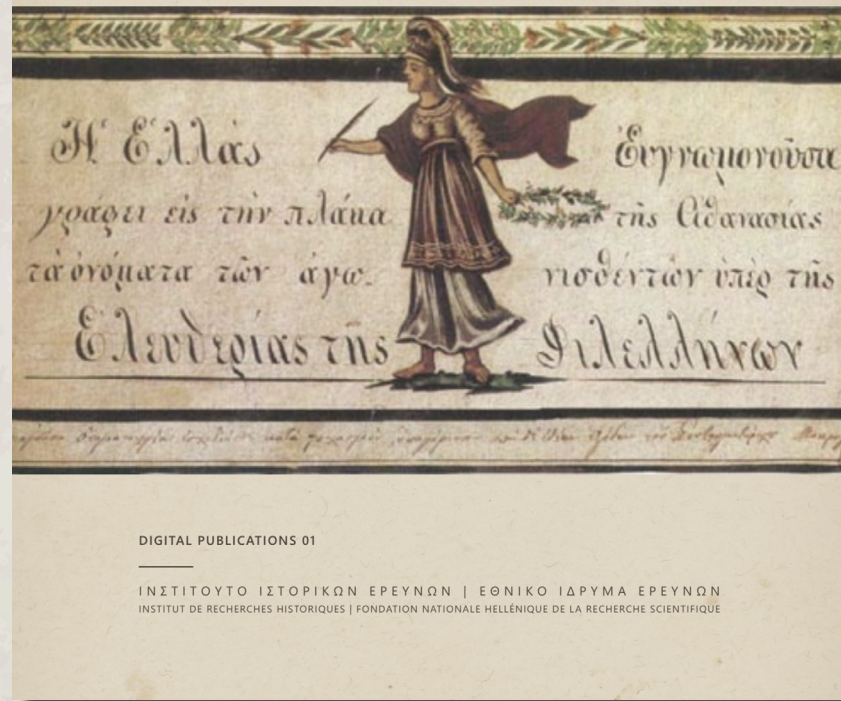 Ἡ Ἑλλὰς Ἐυγνωμονοῦσα
γράφει εἰς τὴν πλάκα τῆς Ἀθανασίας
τὰ ὀνόματα τῶν ἀγω- νισθέντων ὑπὲρ τῆς
Ἐλευθερίας της Φιλελλήνων
DIGITAL PUBLICATIONS 01
ΙΝΣΤΙΤΟΥΤΟ ΙΣΤΟΡΙΚΩΝ ΕΡΕΥΝΩΝ | ΕΘΝΙΚΟ ΙΔΡΥΜΑ ΕΡΕΥΝΩΝ
INSTITUT DE RECHERCHES HISTORIQUES | FONDATION NATIONALE HELLÉNIQUE DE LA RECHERCHE SCIENTIFIQUE